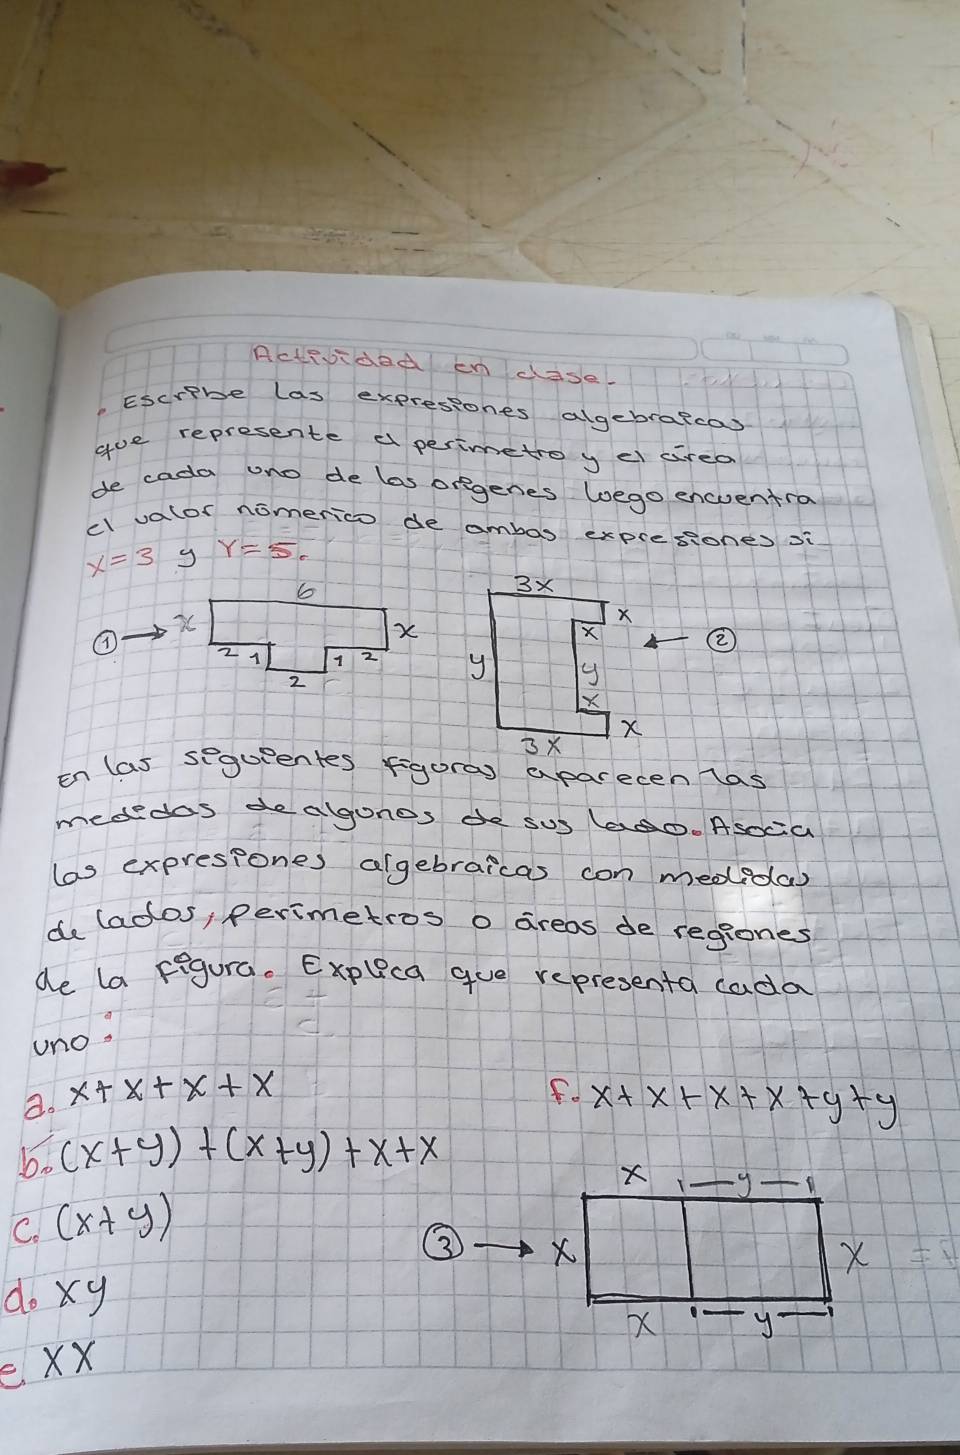 Actividad en clase.
. Escribe las expresiones algebraicas
que represente el perimetro y el área
de cada uno de los origenes luego encuentra
el valor númerico de ambas expresiones si
x=3 y Y=5.
6
3x
① → x
x
x
x
← ②
2 1
1 2
y
y
2
x
x
3x
en las siguientes figuras aparecen las
medidas de algunos de sus lado. Asocia
las expresiones algebraicas con medidas
de lados, perímetros o áreas de regiones
de la figura. Explica que representa cada
uno:
a. x+x+x+x
f. x+x+x+x+y+y
b. (x+y)+(x+y)+x+x
x
y
c. (x+y)
③ → x
x
d. xy
x
y
e. xx